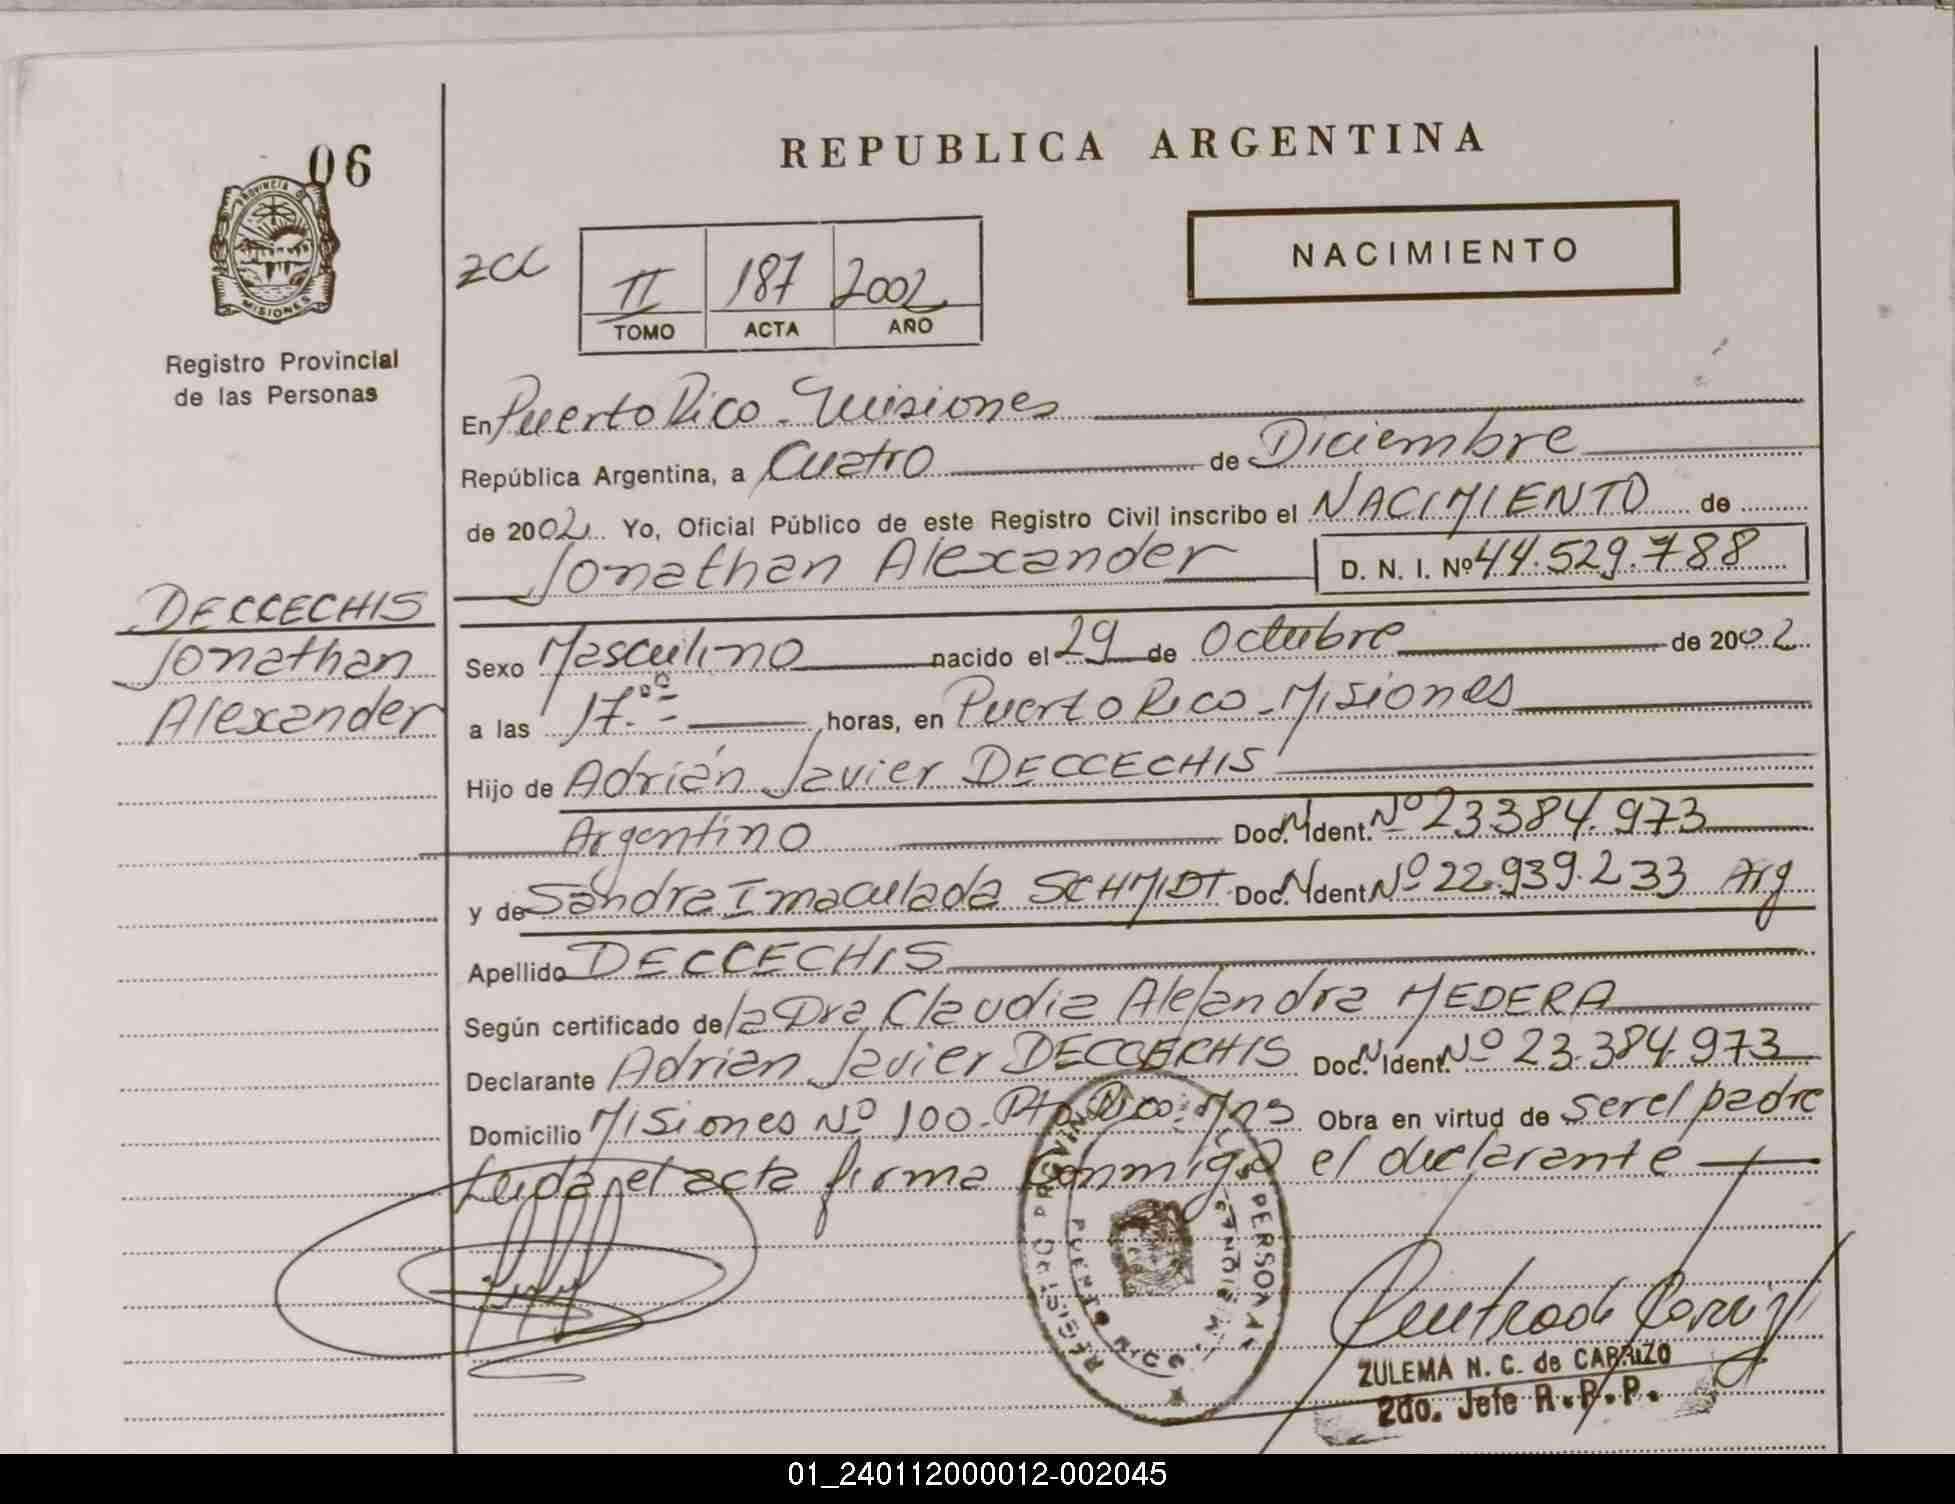 06
PROVINCIA DE
MISIONES
Registro Provincial
de las Personas
REPUBLICA ARGENTINA
NACIMIENTO
zcc
II 187 2002
TOMO ACTA AÑO
En Puerto Rico - Misiones
República Argentina, a Cuatro de Diciembre
de 2002 Yo, Oficial Público de este Registro Civil inscribo el NACIMIENTO de
Jonathan Alexander D. N. I. Nº 44.529.788
DECCECHIS
Jonathan
Alexander
Sexo Masculino nacido el 29 de Octubre de 2002
a las 17.00 horas, en Puerto Rico - Misiones
Hijo de Adrián Javier DECCECHIS
Argentino Doc. N Ident. Nº 23.384.973
y de Sandra Imaculada SCHMIDT Doc. N Ident Nº 22.939.233 Arg
Apellido DECCECHIS
Según certificado de la Dra Claudia Alejandra MEDERA
Declarante Adrian Javier DECCECHIS Doc. N Ident. Nº 23.384.973
Domicilio Misiones Nº 100 - Pto Rico - Mns Obra en virtud de ser el padre
Leida el acta firma conmigo el declarante
PUERTO RICO
ZULEMA N. C. de CARRIZO
2do. Jefe R.P.P.
01_240112000012-002045